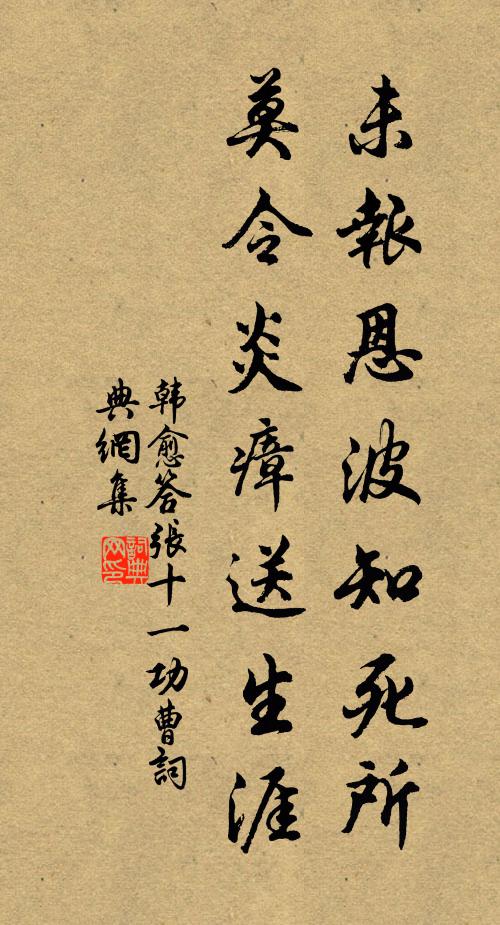 未報恩波知死所
莫令炎瘴送生涯
韩愈答張十一功曹詞
典網集
詞典網印